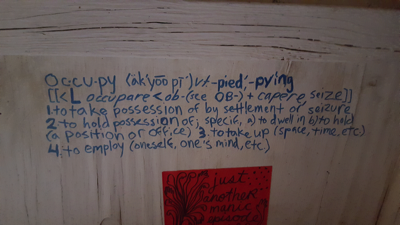 Occu·py (äk'yōō pī') vt. -pied', -pying
[[< L occupare < ob- (see OB-) + capere, seize]]
1. to take possession of by settlement or seizure
2. to hold possession of; specif., a) to dwell in b) to hold
(a position or office) 3. to take up (space, time, etc.)
4. to employ (oneself, one's mind, etc.)
just
another
manic